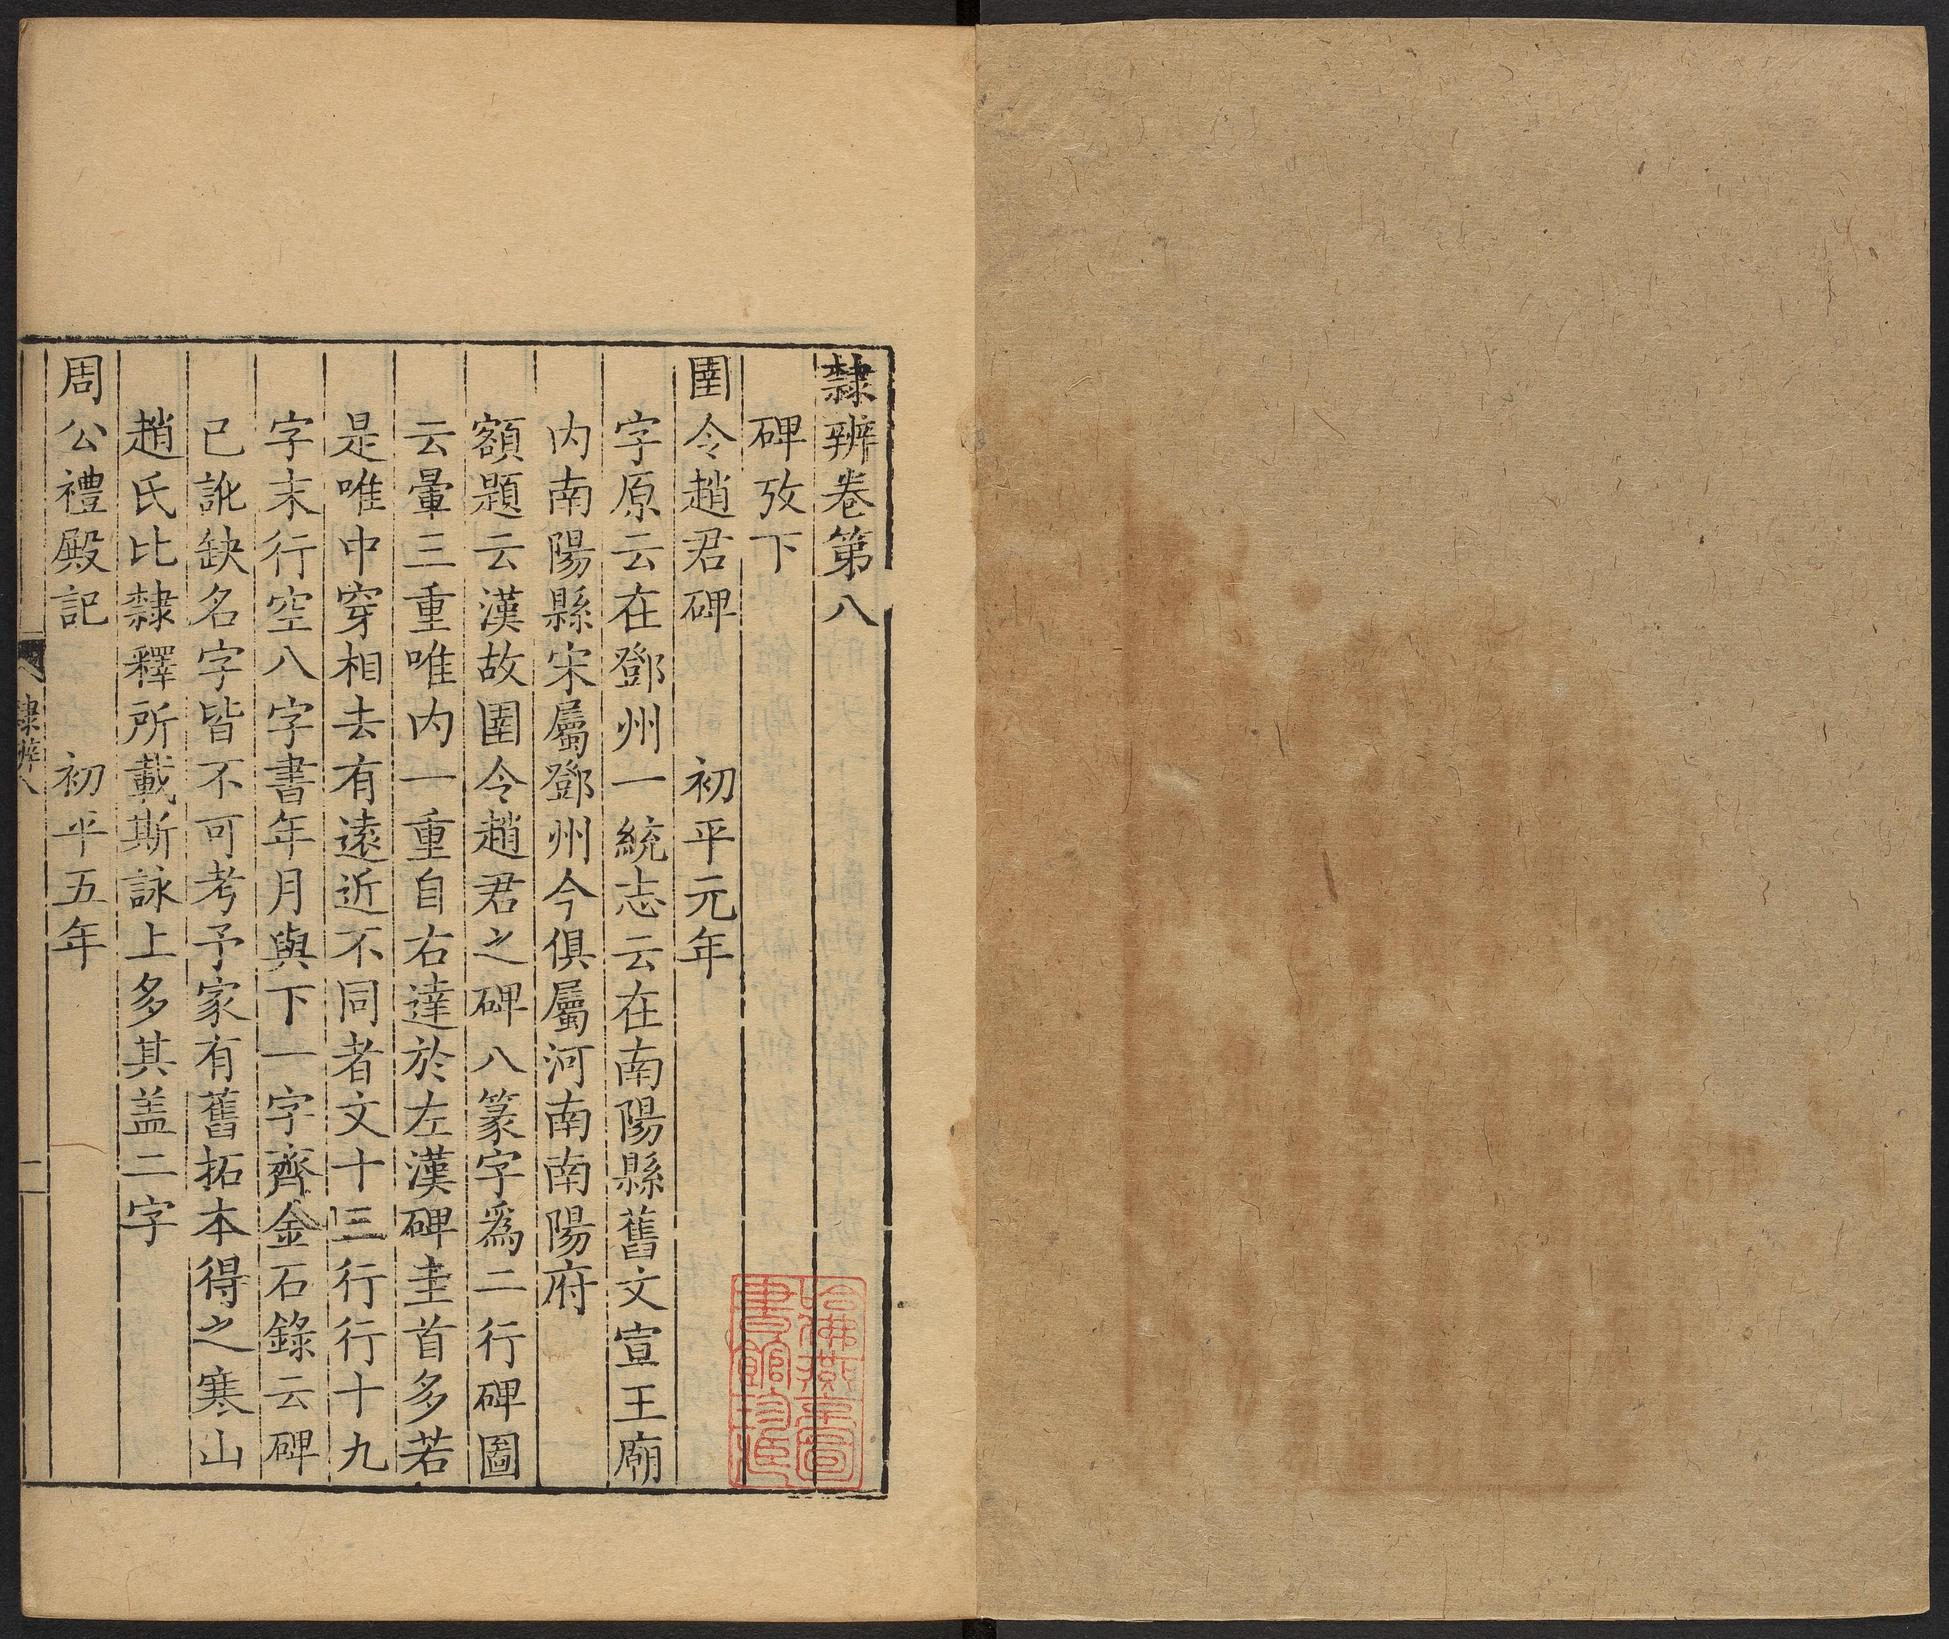 隸辨卷第八
碑攷下
圉令趙君碑 初平元年
字原云在鄧州一統志云在南陽縣舊文宣王廟
内南陽縣宋屬鄧州今俱屬河南南陽府
額題云漢故圉令趙君之碑八篆字爲二行碑圖
云暈三重唯内一重自右達於左漢碑圭首多若
是唯中穿相去有遠近不同者文十三行行十九
字末行空八字書年月與下一字齊金石錄云碑
已訛缺名字皆不可考予家有舊拓本得之寒山
趙氏比隸釋所載斯詠上多其盖二字
周公禮殿記 初平五年
隸辨八
一
哈佛燕京圖
書館珍藏